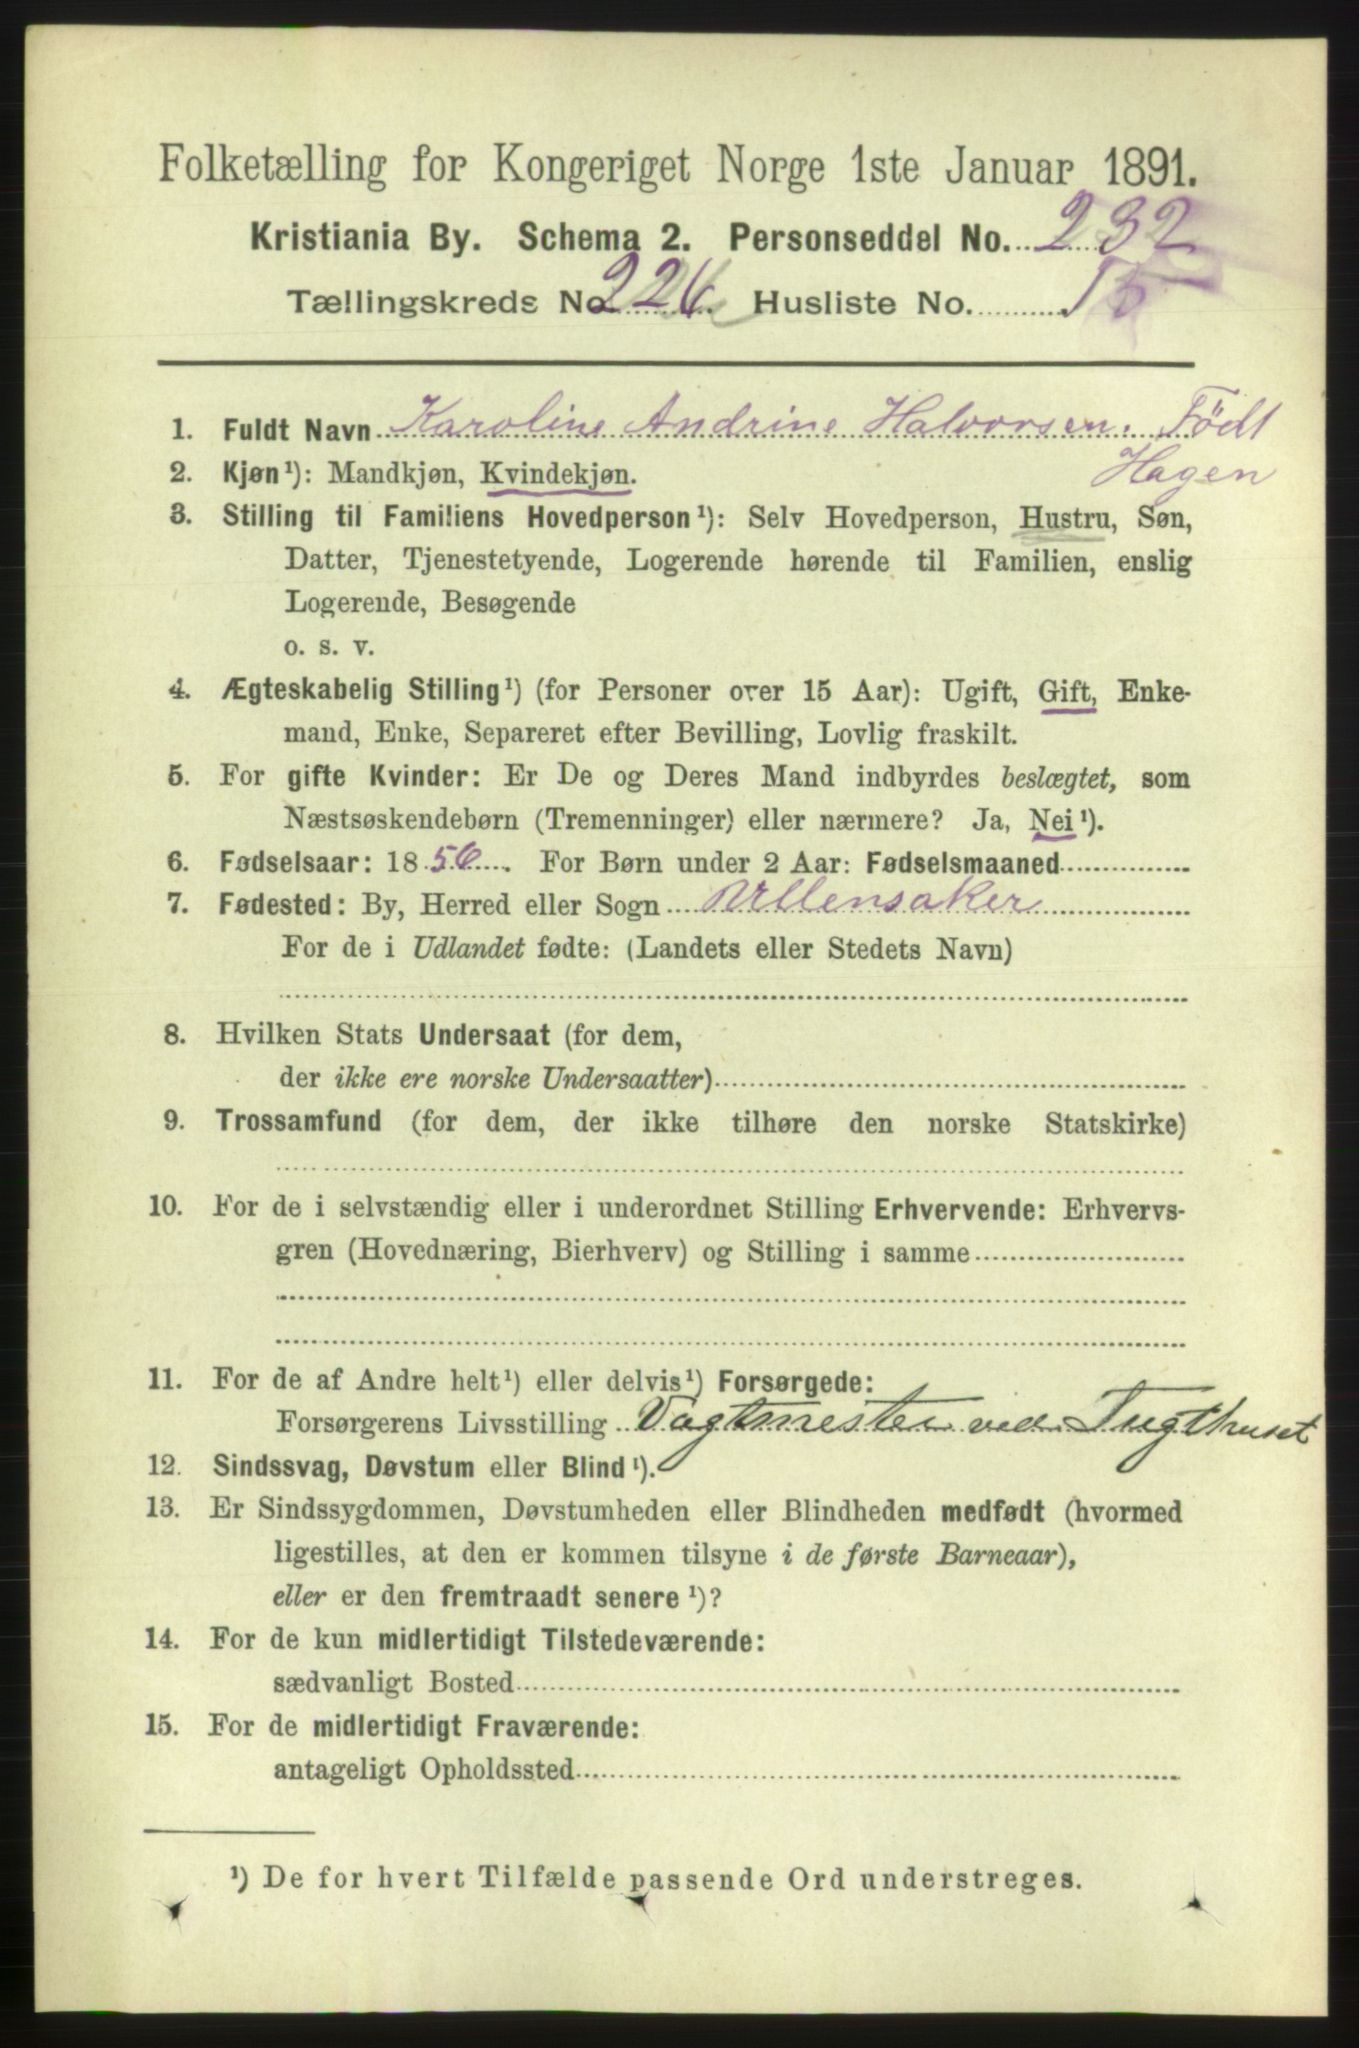 Folketælling for Kongeriget Norge 1ste Januar 1891.
Kristiania By. Schema 2. Personseddel No. 232
Tællingskreds No 226. Husliste No. 15
1. Fuldt Navn Karoline Andrine Halvorsen. Född
Hagen
2. Kjøn¹): Mandkjøn, Kvindekjøn.
3. Stilling til Familiens Hovedperson¹): Selv Hovedperson, Hustru, Søn,
Datter, Tjenestetyende, Logerende hørende til Familien, enslig
Logerende, Besøgende
o. s. v.
4. Ægteskabelig Stilling¹) (for Personer over 15 Aar): Ugift, Gift, Enke-
mand, Enke, Separeret efter Bevilling, Lovlig fraskilt.
5. For gifte Kvinder: Er De og Deres Mand indbyrdes beslægtet, som
Næstsøskendebørn (Tremenninger) eller nærmere? Ja, Nei¹).
6. Fødselsaar: 1856. For Børn under 2 Aar: Fødselsmaaned
7. Fødested: By, Herred eller Sogn Ullensaker
For de i Udlandet fødte: (Landets eller Stedets Navn)
8. Hvilken Stats Undersaat (for dem,
der ikke ere norske Undersaatter)
9. Trossamfund (for dem, der ikke tilhøre den norske Statskirke)
10. For de i selvstændig eller i underordnet Stilling Erhvervende: Erhvervs-
gren (Hovednæring, Bierhverv) og Stilling i samme
11. For de af Andre helt¹) eller delvis¹) Forsørgede:
Forsørgerens Livsstilling Vagtmester ved Tugthuset
12. Sindssvag, Døvstum eller Blind¹).
13. Er Sindssygdommen, Døvstumheden eller Blindheden medfødt (hvormed
ligestilles, at den er kommen tilsyne i de første Barneaar),
eller er den fremtraadt senere¹)?
14. For de kun midlertidigt Tilstedeværende:
sædvanligt Bosted
15. For de midlertidigt Fraværende:
antageligt Opholdssted
¹) De for hvert Tilfælde passende Ord understreges.